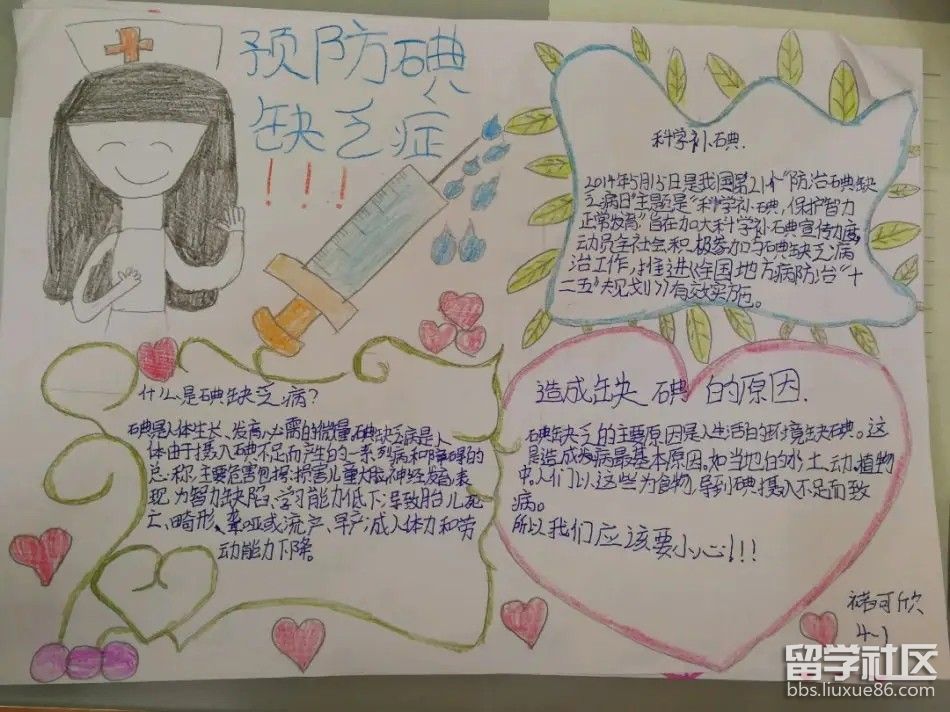 预防碘
缺乏症
!!!
科学补碘.
2014年5月15日是我国第21个“防治碘缺
乏病日”主题是“科学补碘，保护智力
正常发育”旨在加大科学补碘宣传力度，
动员全社会积极参加与碘缺乏病
治工作，推进《全国地方病防治“十
二五”规划》有效实施。
什么是碘缺乏病？
碘是人体生长、发育必需的微量。碘缺乏病是人
体由于摄入碘不足而产生的一系列病和障碍的
总称.主要危害包括:损害儿童大脑神经发育,表
现为智力缺陷、学习能力低下;导致胎儿死
亡、畸形、聋哑或流产、早产;成人体力和劳
动能力下降。
造成缺碘的原因.
碘缺乏的主要原因是人生活的环境缺碘。这
是造成疾病最基本原因。如当地的水土、动、植物
中,人们以这些为食物,导到碘摄入不足而致
病。
所以我们应该要小心!!!
褚可欣
4-1
留学社区
bbs.liuxue86.com